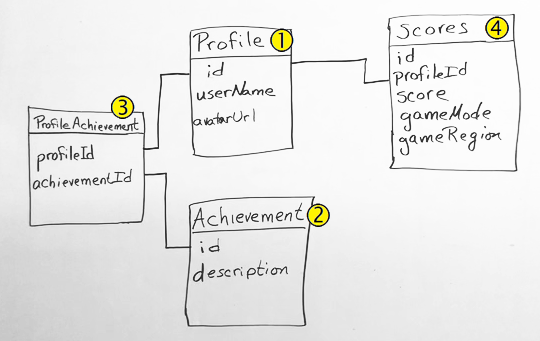 Profile 1
id
userName
avatarUrl
Scores 4
id
profileId
score
gameMode
gameRegion
3
ProfileAchievement
profileId
achievementId
Achievement 2
id
description